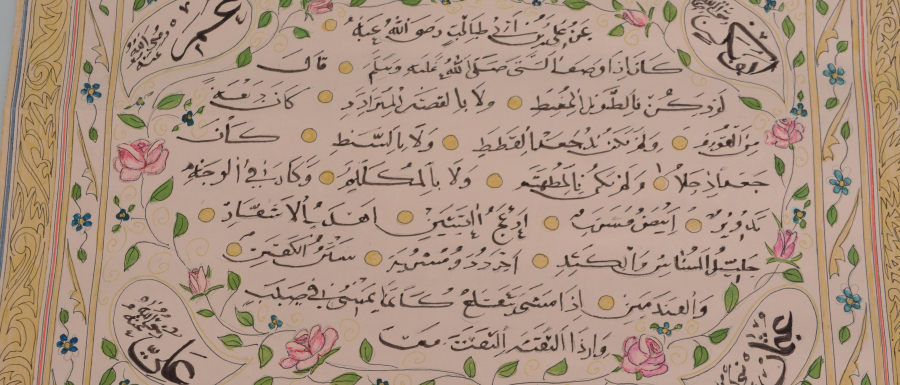 عن علي بن ابي طالب رضي الله عنه
كان اذا وصف النبي صلى الله عليه وسلم قال
لم يكن بالطويل الممغط ولا بالقصير المتردد وكان ربعة
من القوم ولم يكن بالجعد القطط ولا بالسبط كان
جعدا رجلا ولم يكن بالمطهم ولا بالمكلثم وكان في الوجه
تدوير ابيض مشرب ادعج العينين اهدب الاشفار
جليل المشاش والكتد اجرد ذو مسربة شثن الكفين
والقدمين اذا مشى تقلع كانما يمشي في صبب
واذا التفت التفت معا
عمر رضي الله عنه
ابو بكر رضي الله عنه
علي رضي الله عنه
عثمان